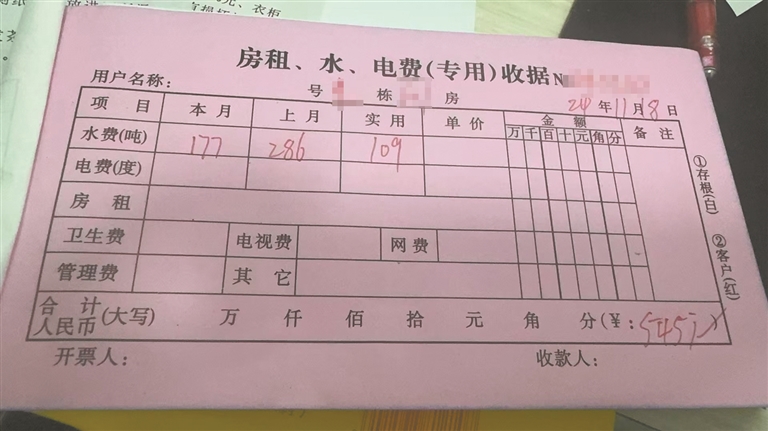 房租、水、电费(专用)收据 №
用户名称： 号 栋 房 24 年 11 月 8 日
项 目 本 月 上 月 实 用 单 价 金 额 备 注
万 千 百 十 元 角 分
水费(吨) 177 286 109
电费(度)
房 租
卫生费 电视费 网 费
管理费 其 它
合 计 人民币 (大写) 万 仟 佰 拾 元 角 分(¥: 545
开票人： 收款人：
①存根(白)
②客户(红)